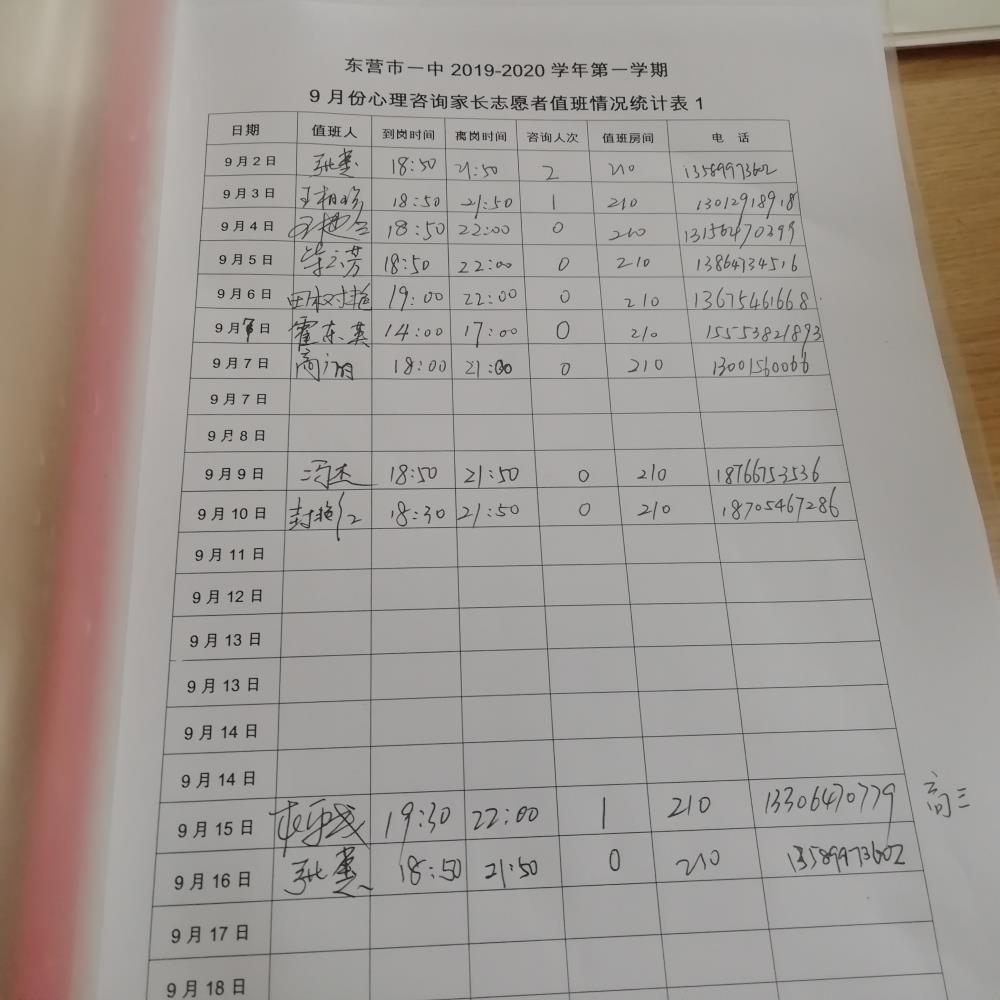 东营市一中 2019-2020 学年第一学期
9 月份心理咨询家长志愿者值班情况统计表 1
日期 值班人 到岗时间 离岗时间 咨询人次 值班房间 电 话
9 月 2 日 18:50 21:50 2 210 13589973602
9 月 3 日 18:50 21:50 1 210 13012918918
9 月 4 日 18:50 22:00 0 210 13156470399
9 月 5 日 18:50 22:00 0 210 13864734516
9 月 6 日 19:00 22:00 0 210 13675461668
9 月 7 日 霍东英 14:00 17:00 0 210 15553821893
9 月 7 日 18:00 21:00 0 210 13001560066
9 月 7 日
9 月 8 日
9 月 9 日 冯杰 18:50 21:50 0 210 18766753536
9 月 10 日 18:30 21:50 0 210 18705467286
9 月 11 日
9 月 12 日
9 月 13 日
9 月 13 日
9 月 14 日
9 月 14 日
9 月 15 日 19:30 22:00 1 210 13306470779 高三
9 月 16 日 18:50 21:50 0 210 13589973602
9 月 17 日
9 月 18 日